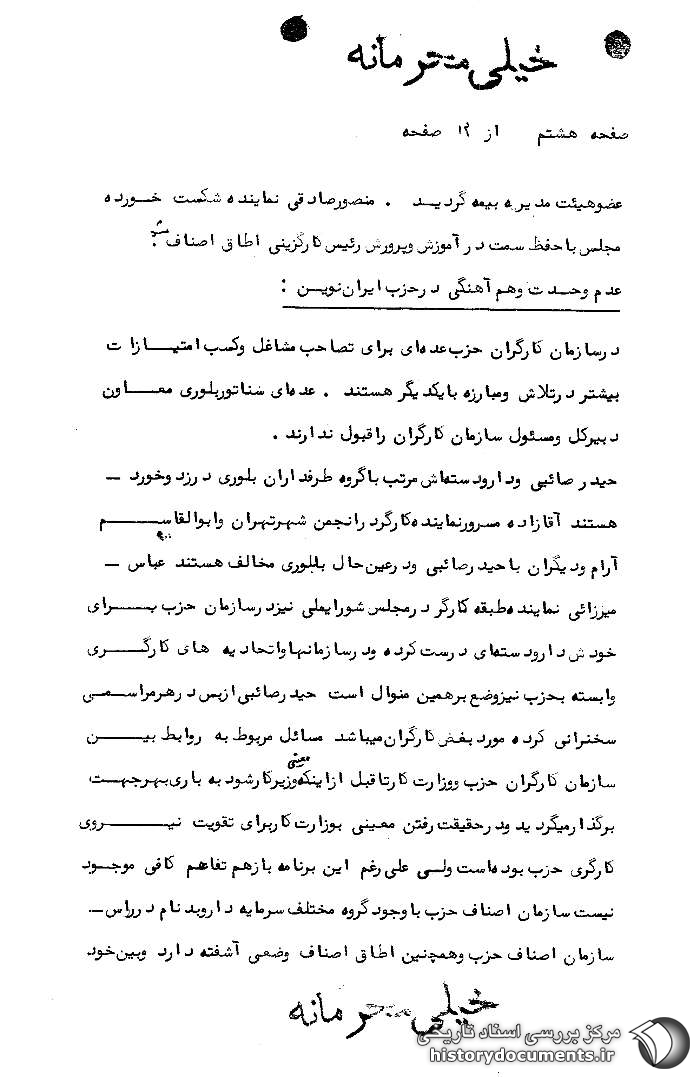 خیلی محرمانه
صفحه هشتم از ۱۲ صفحه
عضو هیئت مدیره بیمه گردید . منصور صادقی نماینده شکست خورده
مجلس با حفظ سمت در آموزش و پرورش رئیس کارگزینی اطاق اصناف شد .
عدم وحدت و هم آهنگی در حزب ایران نوین :
در سازمان کارگران حزب عده‌ای برای تصاحب مشاغل و کسب امتیازات
بیشتر در تلاش و مبارزه با یکدیگر هستند . عده‌ای سناتور بلوری معاون
دبیرکل و مسئول سازمان کارگران را قبول ندارند .
حیدر صائبی و دارودسته‌اش مرتب با گروه طرفداران بلوری در زد و خورد –
هستند آقازاده مسرور نماینده کارگر در انجمن شهر تهران و ابوالقاسم
آرام و دیگران با حیدر صائبی و در عین حال با بلوری مخالف هستند عباس –
میرزائی نماینده طبقه کارگر در مجلس شورایملی نیز در سازمان حزب برای
خودش دارودسته‌ای درست کرده و در سازمانها و اتحادیه های کارگری
وابسته بحزب نیز وضع بر همین منوال است حیدر صائبی از بس در هر مراسمی
سخنرانی کرده مورد بغض کارگران میباشد مسائل مربوط به روابط بین
سازمان کارگران حزب و وزارت کار تا قبل از اینکه معینی وزیر کار شود به باری بهر جهت
برگذار میگردید و در حقیقت رفتن معینی بوزارت کار برای تقویت نیروی
کارگری حزب بوده است ولی علی رغم این برنامه باز هم تفاهم کافی موجود
نیست سازمان اصناف حزب با وجود گروه مختلف سرمایه دار و بدنام در راس –
سازمان اصناف حزب و همچنین اطاق اصناف وضعی آشفته دارد و بین خود
خیلی محرمانه
مرکز بررسی اسناد تاریخی
historydocuments.ir